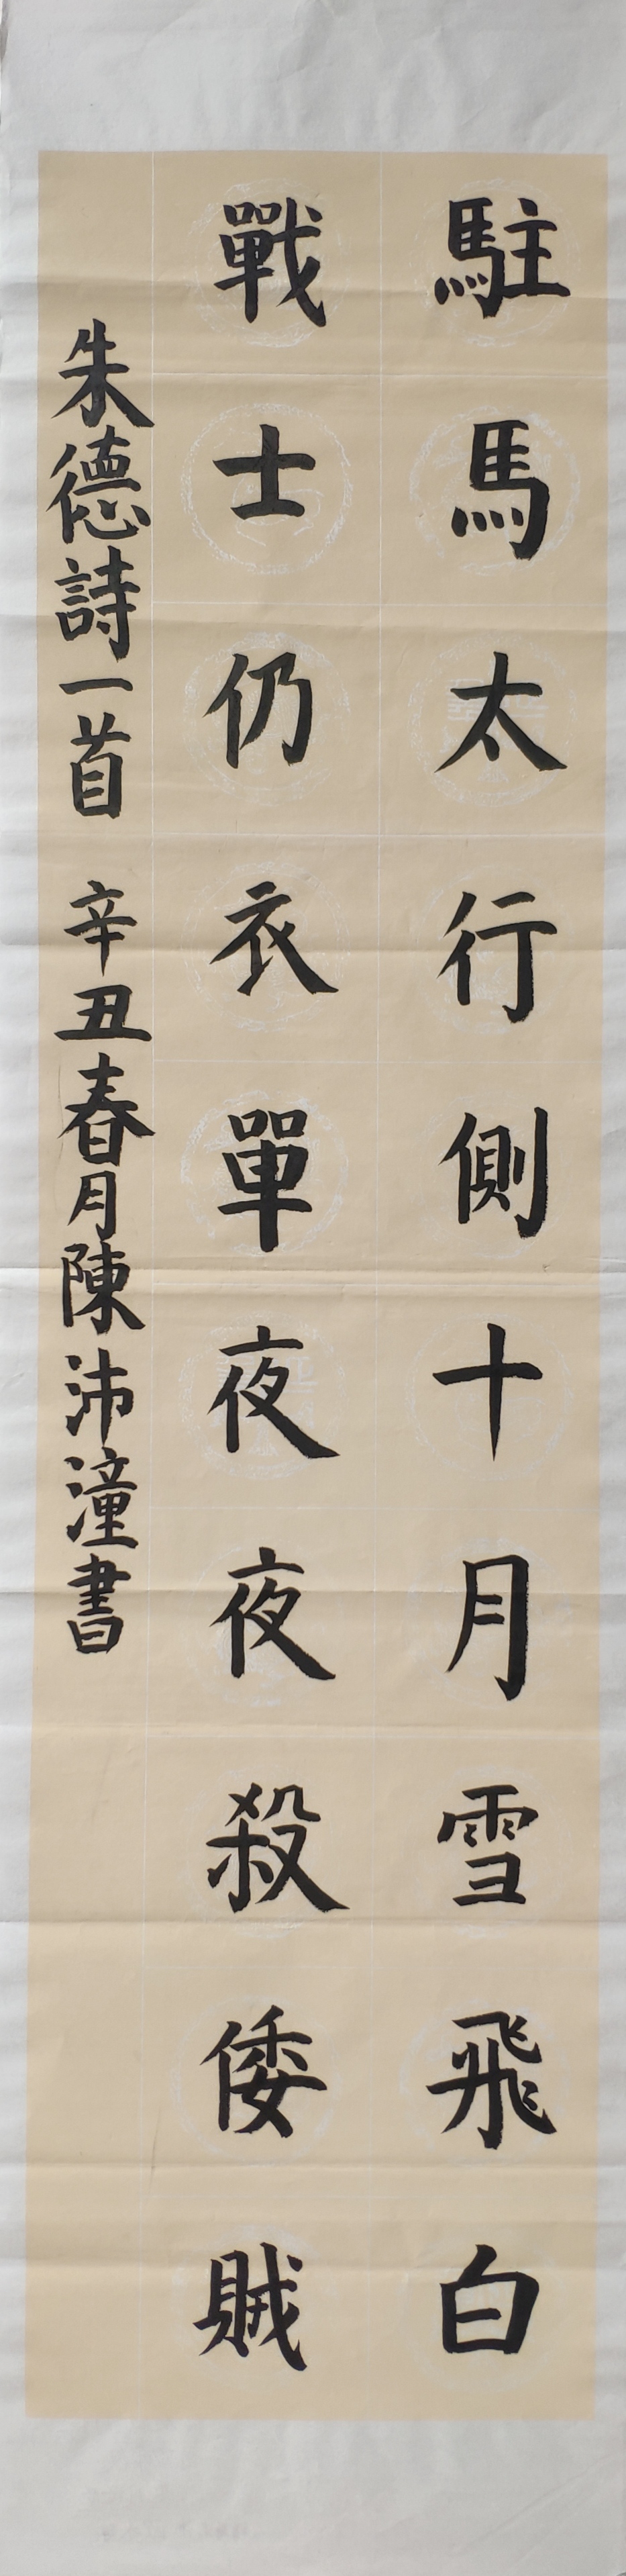 駐馬太行側十月雪飛白
戰士仍衣單夜夜殺倭賊
朱德詩一首 辛丑春月陳沛潼書